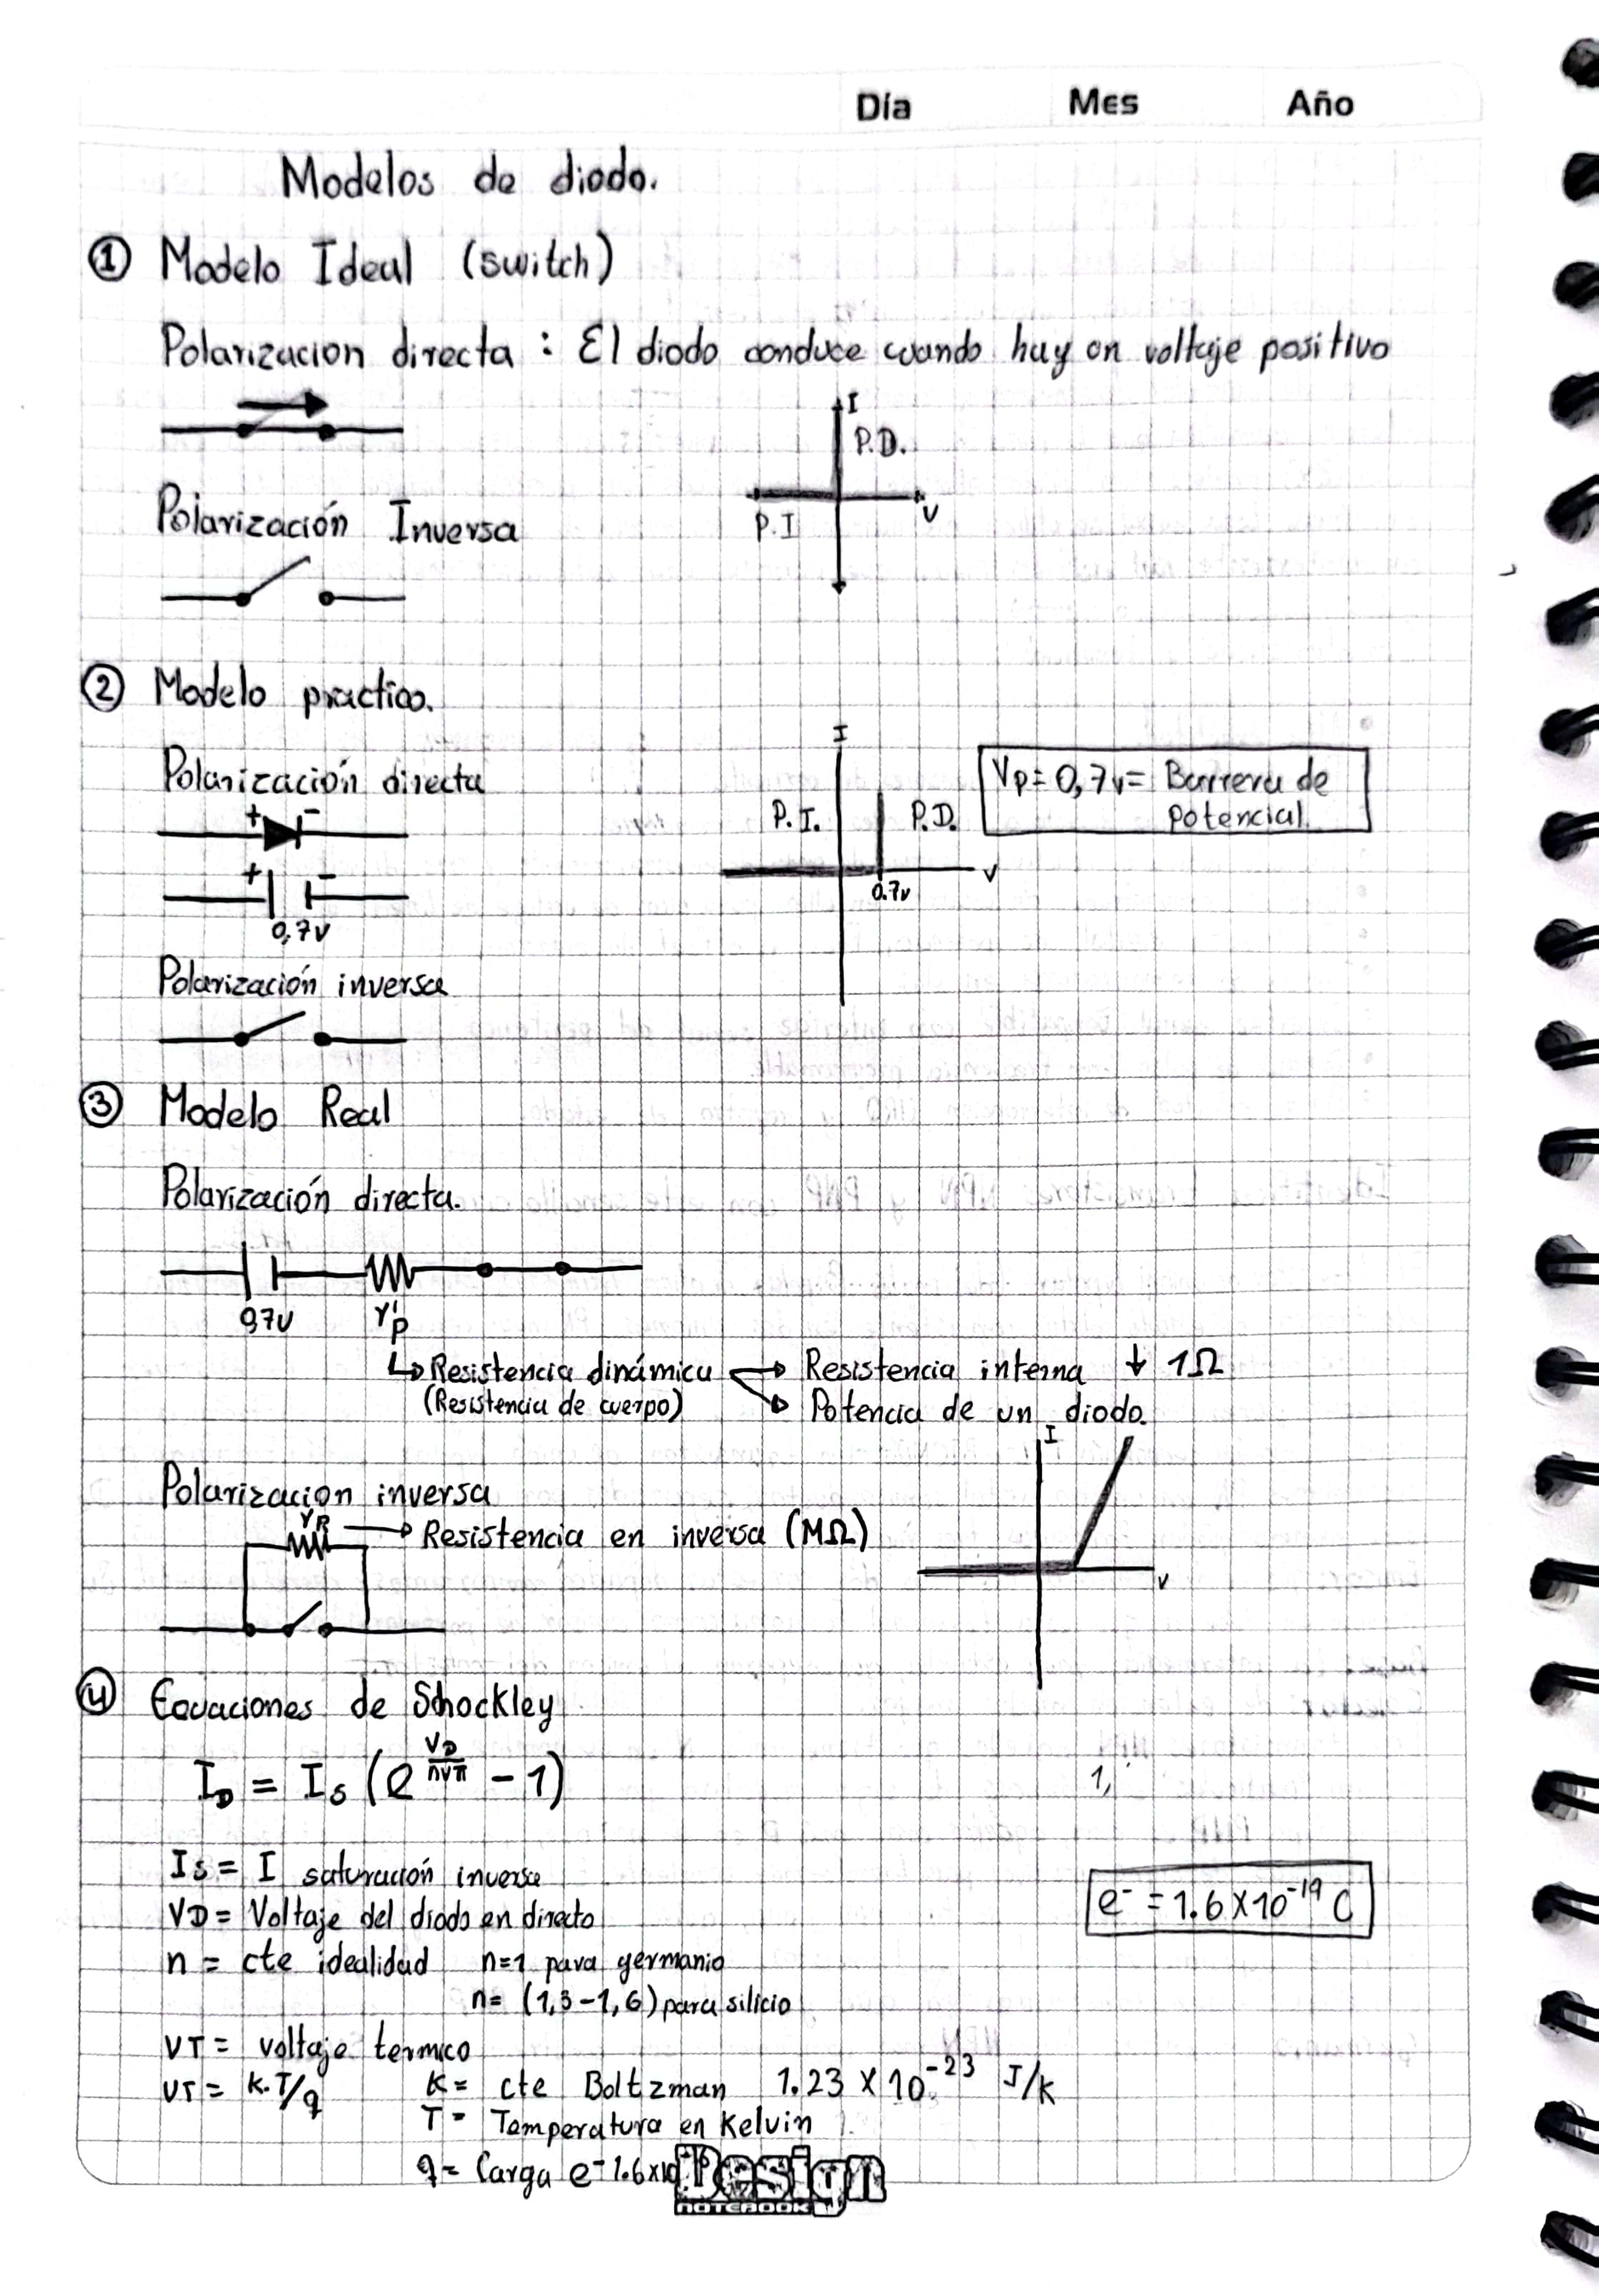 Día Mes Año
Modelos de diodo.
① Modelo Ideal (switch)
Polarizacion directa : El diodo conduce cuando hay un voltaje positivo
I
P.D.
Polarización Inversa
P.I
V
② Modelo practico.
Polarización directa
I
Vp = 0,7v = Barrera de
potencial.
+ -
P.I. P.D.
+ -
V
0.7v
0,7v
Polarización inversa
③ Modelo Real
Polarización directa.
0,7v r'p
↳ Resistencia dinámica → Resistencia interna ↓ 1Ω
(Resistencia de cuerpo) → Potencia de un diodo.
I
Polarizacion inversa
rR → Resistencia en inversa (MΩ)
V
④ Ecuaciones de Shockley
I_D = I_S (e^(VD/nVT) - 1)
1,
Is = I saturación inversa
VD = Voltaje del diodo en directo
e⁻ = 1.6 x 10⁻¹⁹ C
n = cte idealidad n=1 para germanio
n= (1,3-1,6) para silicio
VT = voltaje termico
VT = K.T/q K = cte Boltzman 1.23 x 10⁻²³ J/k
T = Temperatura en Kelvin
q = Carga e⁻ 1.6x10
Design
NOTEBOOK